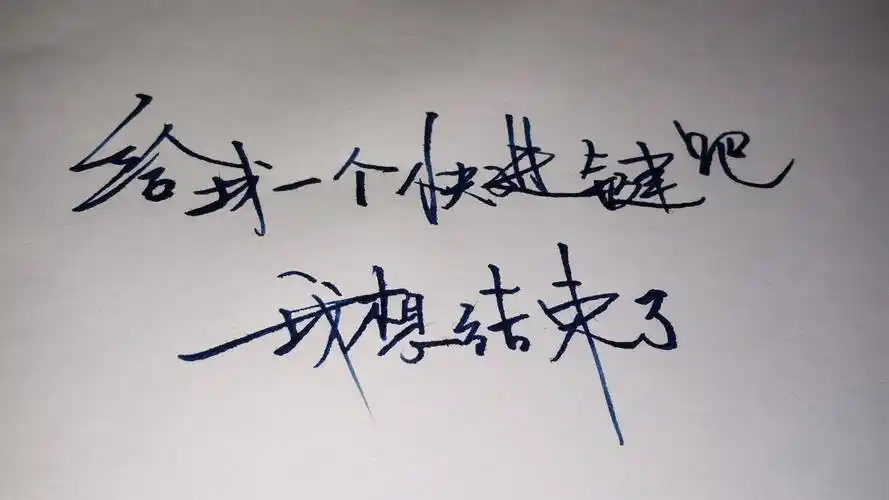 给我一个快进键吧
我想结束了